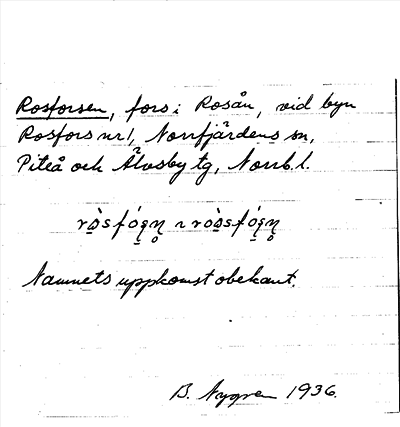 Rosforsen, fors i Rosån, vid byn
Rosfors nr 1, Norrfjärdens sn,
Piteå och Älvsby tg, Norrb. l.
Namnets uppkomst obekant.
B. Nygren 1936.